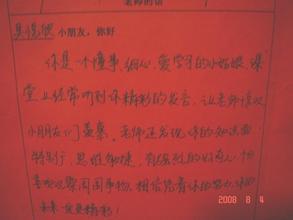 老师的话
小朋友，你好
你是一个懂事、细心、爱学习的小姑娘，课
堂上经常听到你精彩的发言，让老师
小朋友们羡慕。老师还发现你的知识面
特别广，思维敏捷，
观察周围事物，相信凭着你的努力，你的
未来会更精彩！
2008 8 4